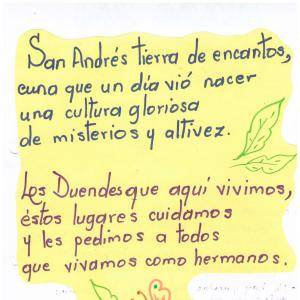 San Andrés tierra de encantos,
cuna que un día vió nacer
una cultura gloriosa
de misterios y altivez.
Los Duendes que aquí vivimos,
éstos lugares cuidamos
y les pedimos a todos
que vivamos como hermanos.